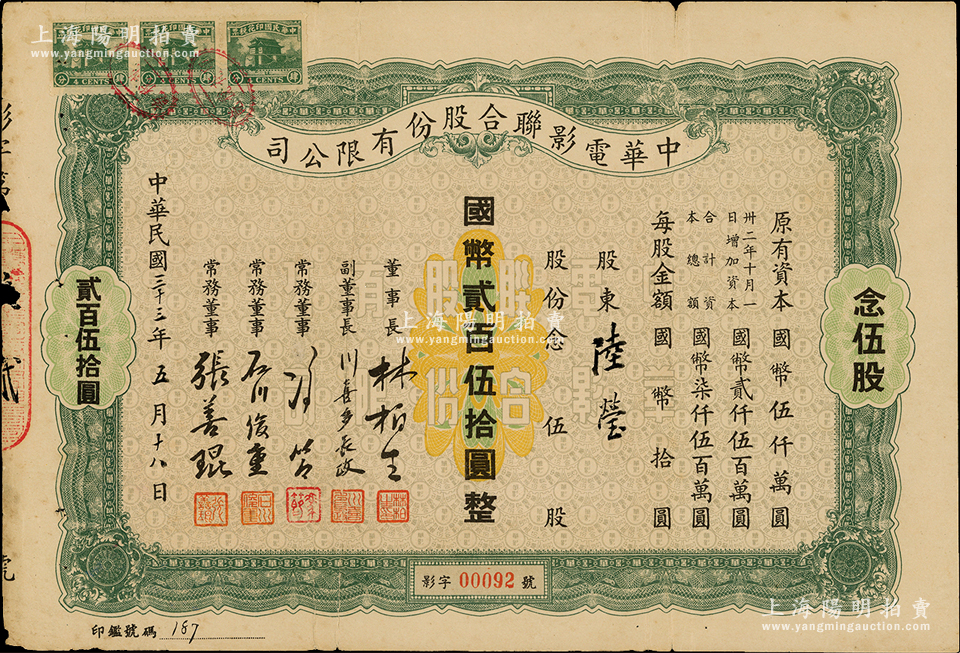 上海陽明拍賣
www.yangmingauction.com
中華民國印花稅票
肆分
4 CENTS
中華電影聯合股份有限公司
念伍股
原有資本國幣伍仟萬圓
卅二年十月一日增加資本國幣貳仟伍百萬圓
合計資本總額國幣柒仟伍百萬圓
每股金額國幣拾圓
股東陸瑩
股份念伍股
國幣貳百伍拾圓整
董事長林柏生
副董事長川喜多長政
常務董事馮節
常務董事石川俊重
常務董事張善琨
中華民國三十三年五月十八日
貳百伍拾圓
影字00092號
印鑑號碼187
上海陽明拍賣
www.yangmingauction.com
上海陽明拍賣
www.yangmingauction.com